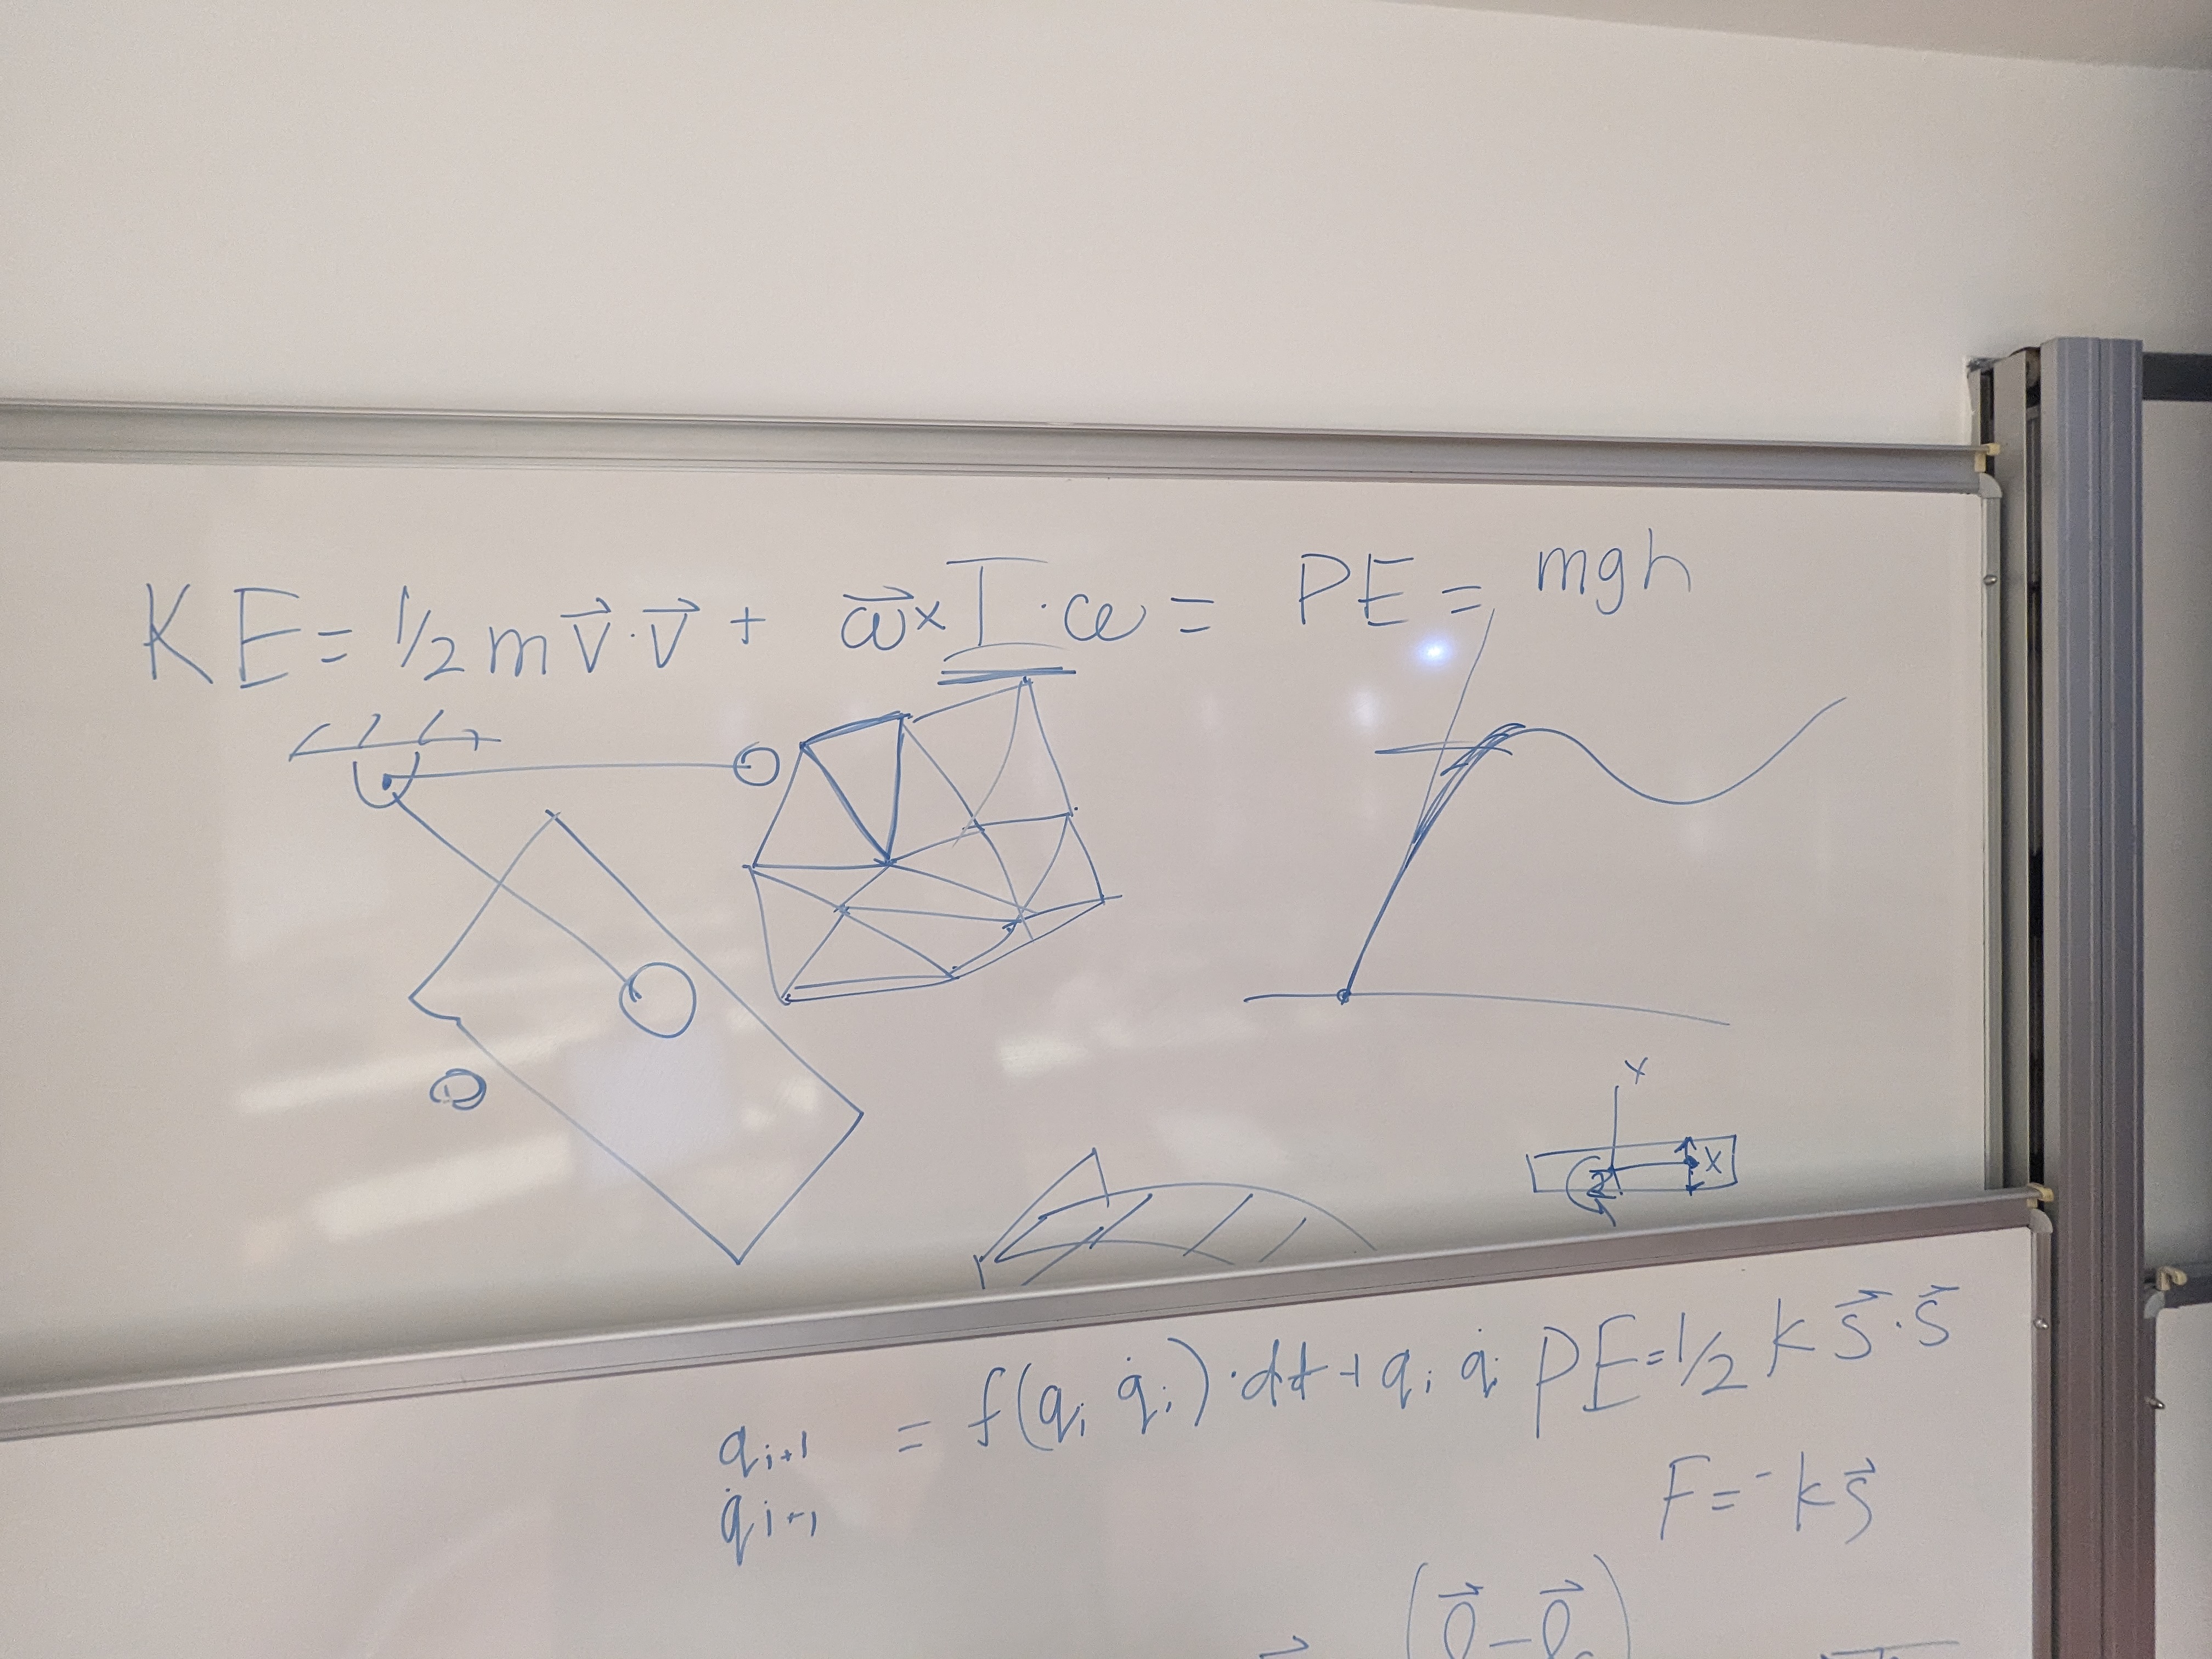 KE = 1/2 m v⃗ · v⃗ + ω⃗ × I · ω = PE = mgh
x
x
z
q_i+1 = f(q_i q̇_i) · dt + q_i q̇_i PE = 1/2 k s⃗ · s⃗
q̇_i+1
F = -k s⃗